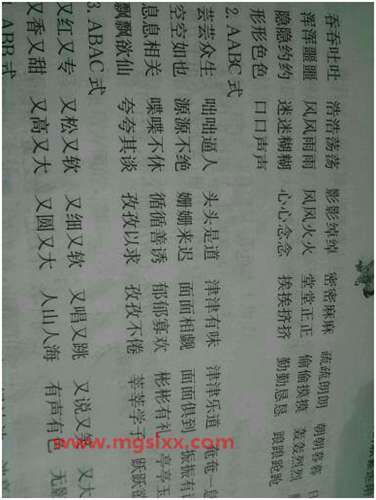 吞吞吐吐 浩浩荡荡 影影绰绰 密密麻麻 疏疏朗朗 朝朝暮暮
浑浑噩噩 风风雨雨 风风火火 堂堂正正 偷偷摸摸 轰轰烈烈
隐隐约约 迷迷糊糊 心心念念 挨挨挤挤 勤勤恳恳 踉踉跄跄
形形色色 口口声声
2. AABC式
芸芸众生 咄咄逼人 头头是道 津津有味 津津乐道 奄奄一
空空如也 源源不绝 姗姗来迟 面面相觑 面面俱到 振振有
息息相关 喋喋不休 循循善诱 郁郁寡欢 彬彬有礼 亭亭玉
飘飘欲仙 夸夸其谈 孜孜以求 孜孜不倦 莘莘学子 跃跃欲
3. ABAC式
又红又专 又松又软 又细又软 又唱又跳 又说又
又香又甜 又高又大 又圆又大 人山人海 有声有色 无
ABB式
www.mgslxx.com